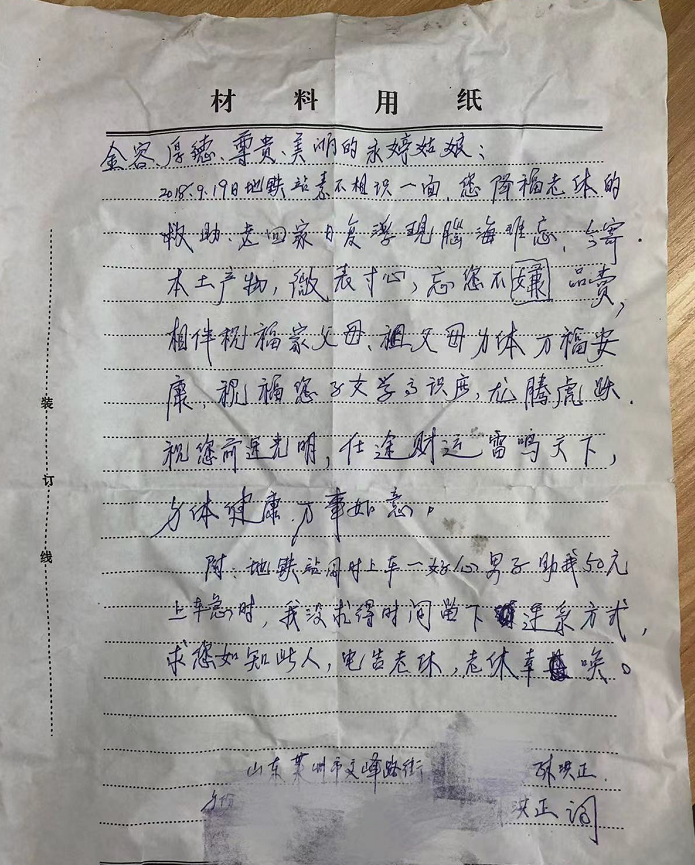 材料用纸
金容、厚德、尊贵、美丽的永婷姑娘:
2018.9.19日地铁站素不相识一面,您降福老休的
救助,走回家日复浮现腦海难忘,今寄
本土产物,微表寸心,忘您不嫌品賣,
相伴祝福家父母、祖父母身体万福安
康,祝福您子女学习识底,龙腾虎跃.
祝您前途光明,仕途财运雷鸣天下,
身体健康,万事如意。
附:地铁站同时上车一好心男子助我50元
上车急时,我没求得时间留下连系方式,
求您如知此人,电告老休,老休幸唤。
山东莱州市文峰路街
洪正.
洪正
装
订
线